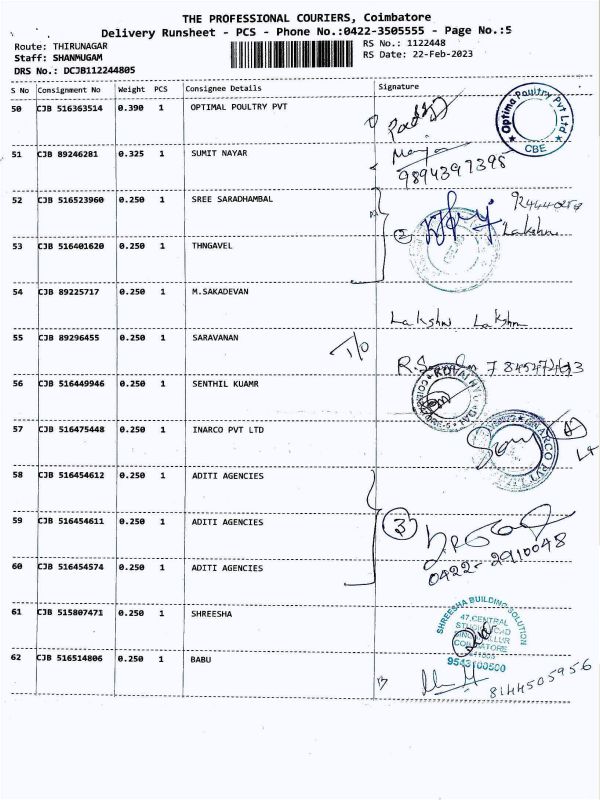 THE PROFESSIONAL COURIERS, Coimbatore
Delivery Runsheet - PCS - Phone No.:0422-3505555 - Page No.:5
Route: THIRUNAGAR RS No.: 1122448
Staff: SHANMUGAM RS Date: 22-Feb-2023
DRS No.: DCJB112244805
S No Consignment No Weight PCS Consignee Details Signature
50 CJB 516363514 0.390 1 OPTIMAL POULTRY PVT
Optima Poultry Pvt Ltd
CBE
51 CJB 89246281 0.325 1 SUMIT NAYAR
9894397398
52 CJB 516523960 0.250 1 SREE SARADHAMBAL
Lakshmi
2
53 CJB 516401620 0.250 1 THNGAVEL
54 CJB 89225717 0.250 1 M.SAKADEVAN
Lakshmi Lakshmi
55 CJB 89296455 0.250 1 SARAVANAN
T/O
56 CJB 516449946 0.250 1 SENTHIL KUAMR
57 CJB 516475448 0.250 1 INARCO PVT LTD
INARCO PVT
58 CJB 516454612 0.250 1 ADITI AGENCIES
59 CJB 516454611 0.250 1 ADITI AGENCIES
3
60 CJB 516454574 0.250 1 ADITI AGENCIES
0422-2910048
61 CJB 515807471 0.250 1 SHREESHA
SHREESHA BUILDING SOLUTION
47, CENTRAL
COIMBATORE
9543100500
62 CJB 516514806 0.250 1 BABU
8144505956